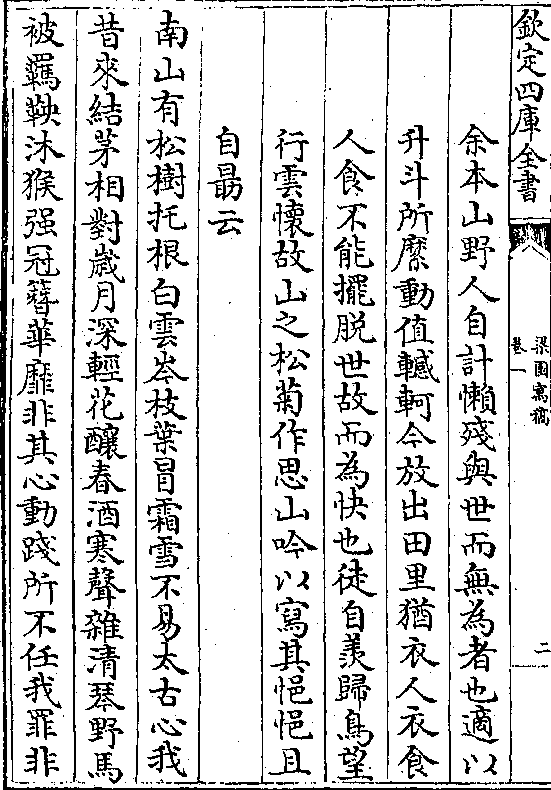 欽定四庫全書
梁園寓稿
卷一
二
余本山野人自計懶殘與世而無為者也適以
升斗所縻動值轗軻今放出田里猶衣人衣食
人食不能擺脱世故而為快也徒自羨歸鳥望
行雲懷故山之松菊作思山吟以寫其悒悒且
自勗云
南山有松樹托根白雲岑枝葉冒霜雪不易太古心我
昔來結茅相對歲月深輕花釀春酒寒聲雜清琴野馬
被羈鞅沐猴强冠簮華靡非其心動踐所不任我罪非